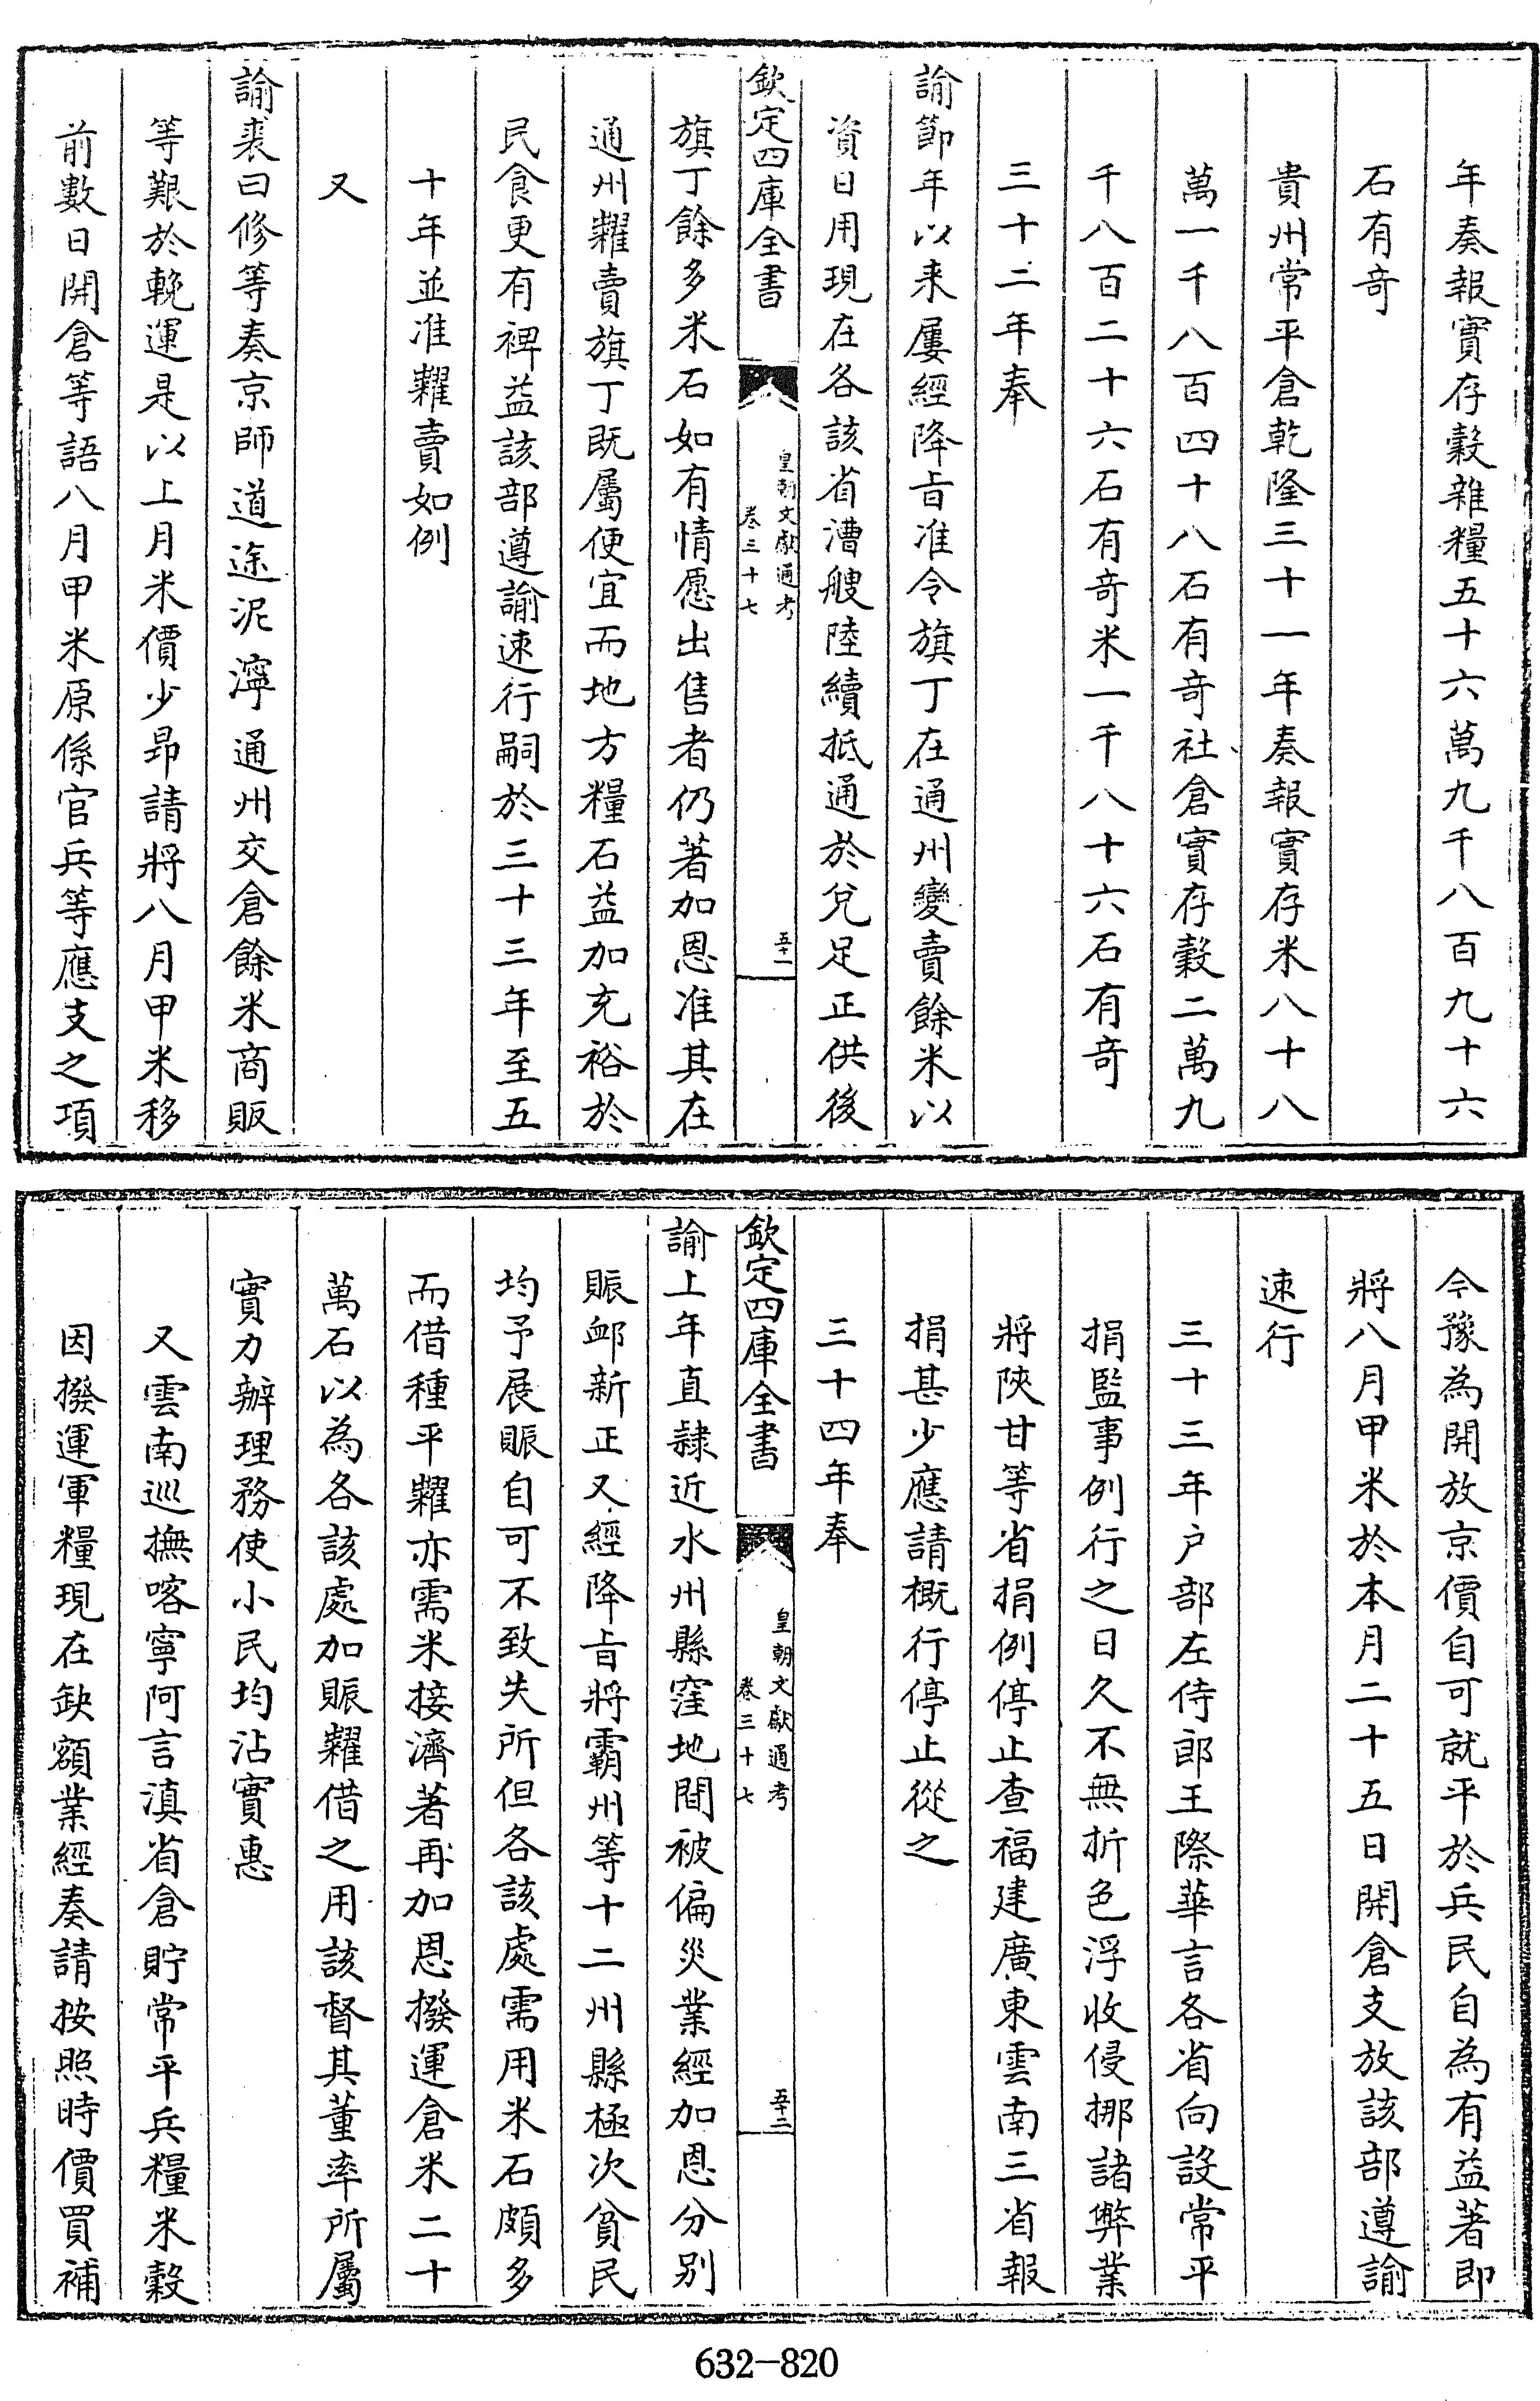 年奏報實存穀雜糧五十六萬九千八百九十六
石有奇
貴州常平倉乾隆三十一年奏報實存米八十八
萬一千八百四十八石有奇社倉實存穀二萬九
千八百二十六石有奇米一千八十六石有奇
三十二年奉
諭節年以来屢經降㫖准令旗丁在通州變賣餘米以
資日用現在各該省漕艘陸續抵通於兌足正供後
欽定四庫全書
皇朝文獻通考
卷三十七
五十一
旗丁餘多米石如有情愿出售者仍著加恩准其在
通州糶賣旗丁既屬便宜而地方糧石益加充裕於
民食更有裨益該部遵諭速行嗣於三十三年至五
十年並准糶賣如例
又
諭裘曰修等奏京師道途泥濘通州交倉餘米商販
等艱於輓運是以上月米價少昻請將八月甲米移
前數日開倉等語八月甲米原係官兵等應支之項
今豫為開放京價自可就平於兵民自為有益著即
將八月甲米於本月二十五日開倉支放該部遵諭
速行
三十三年戶部左侍郎王際華言各省向設常平
捐監事例行之日久不無折色浮收侵挪諸弊業
將陝甘等省捐例停止查福建廣東雲南三省報
捐甚少應請概行停止從之
三十四年奉
欽定四庫全書
皇朝文獻通考
卷三十七
五十二
諭上年直隸近水州縣窪地間被偏災業經加恩分别
賑䘏新正又經降㫖將霸州等十二州縣極次貧民
均予展賑自可不致失所但各該處需用米石頗多
而借種平糶亦需米接濟著再加恩撥運倉米二十
萬石以為各該處加賑糶借之用該督其董率所屬
實力辦理務使小民均沾實惠
又雲南巡撫喀寧阿言滇省倉貯常平兵糧米穀
因撥運軍糧現在缺額業經奏請按照時價買補
632-820